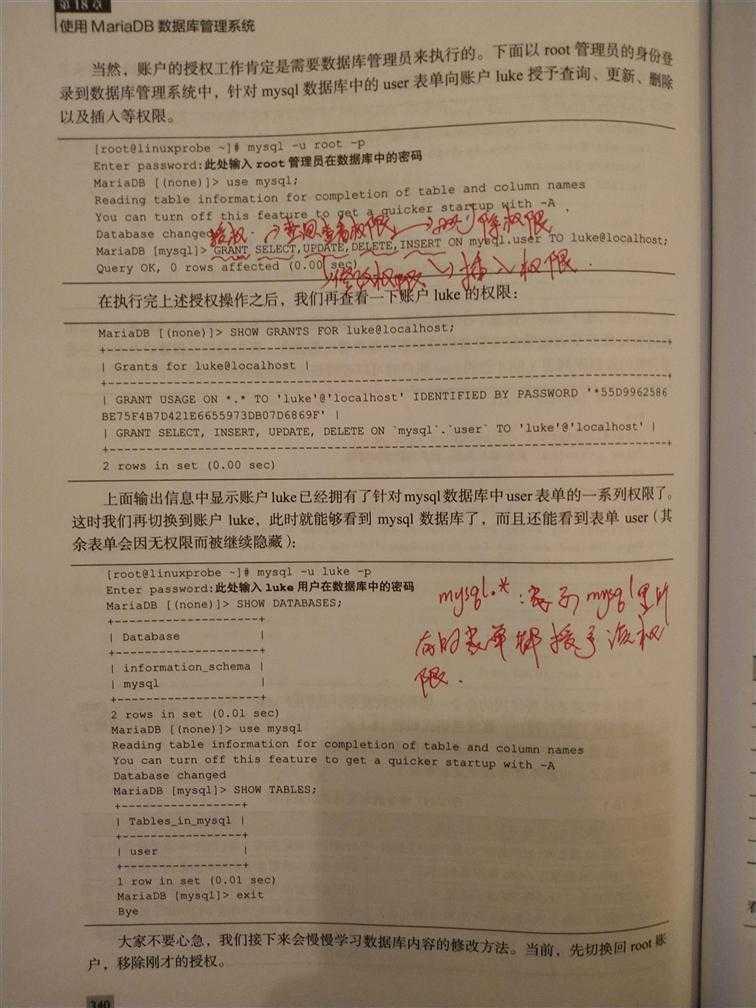 第18章
使用 MariaDB 数据库管理系统
当然，账户的授权工作肯定是需要数据库管理员来执行的。下面以 root 管理员的身份登
录到数据库管理系统中，针对 mysql 数据库中的 user 表单向账户 luke 授予查询、更新、删除
以及插入等权限。
[root@linuxprobe ~]# mysql -u root -p
Enter password:此处输入 root 管理员在数据库中的密码
MariaDB [(none)]> use mysql;
Reading table information for completion of table and column names
You can turn off this feature to get a quicker startup with -A
Database changed
授权 查看权限 删除权限
MariaDB [mysql]> GRANT SELECT,UPDATE,DELETE,INSERT ON mysql.user TO luke@localhost;
Query OK, 0 rows affected (0.00 sec)
修改权限 插入权限.
在执行完上述授权操作之后，我们再查看一下账户 luke 的权限：
MariaDB [(none)]> SHOW GRANTS FOR luke@localhost;
+-----------------------------------------------------------------------------+
| Grants for luke@localhost |
+-----------------------------------------------------------------------------+
| GRANT USAGE ON *.* TO 'luke'@'localhost' IDENTIFIED BY PASSWORD '*55D9962586
BE75F4B7D421E6655973DB07D6869F' |
| GRANT SELECT, INSERT, UPDATE, DELETE ON `mysql`.`user` TO 'luke'@'localhost' |
+-----------------------------------------------------------------------------+
2 rows in set (0.00 sec)
上面输出信息中显示账户 luke 已经拥有了针对 mysql 数据库中 user 表单的一系列权限了。
这时我们再切换到账户 luke，此时就能够看到 mysql 数据库了，而且还能看到表单 user（其
余表单会因无权限而被继续隐藏）：
[root@linuxprobe ~]# mysql -u luke -p
Enter password:此处输入 luke 用户在数据库中的密码
MariaDB [(none)]> SHOW DATABASES;
+--------------------+
| Database |
+--------------------+
| information_schema |
| mysql |
+--------------------+
mysql.*：表示 mysql 里所
有的表单都授予该权
限.
2 rows in set (0.01 sec)
MariaDB [(none)]> use mysql
Reading table information for completion of table and column names
You can turn off this feature to get a quicker startup with -A
Database changed
MariaDB [mysql]> SHOW TABLES;
+-----------------+
| Tables_in_mysql |
+-----------------+
| user |
+-----------------+
1 row in set (0.01 sec)
MariaDB [mysql]> exit
Bye
大家不要心急，我们接下来会慢慢学习数据库内容的修改方法。当前，先切换回 root 账
户，移除刚才的授权。
340
看